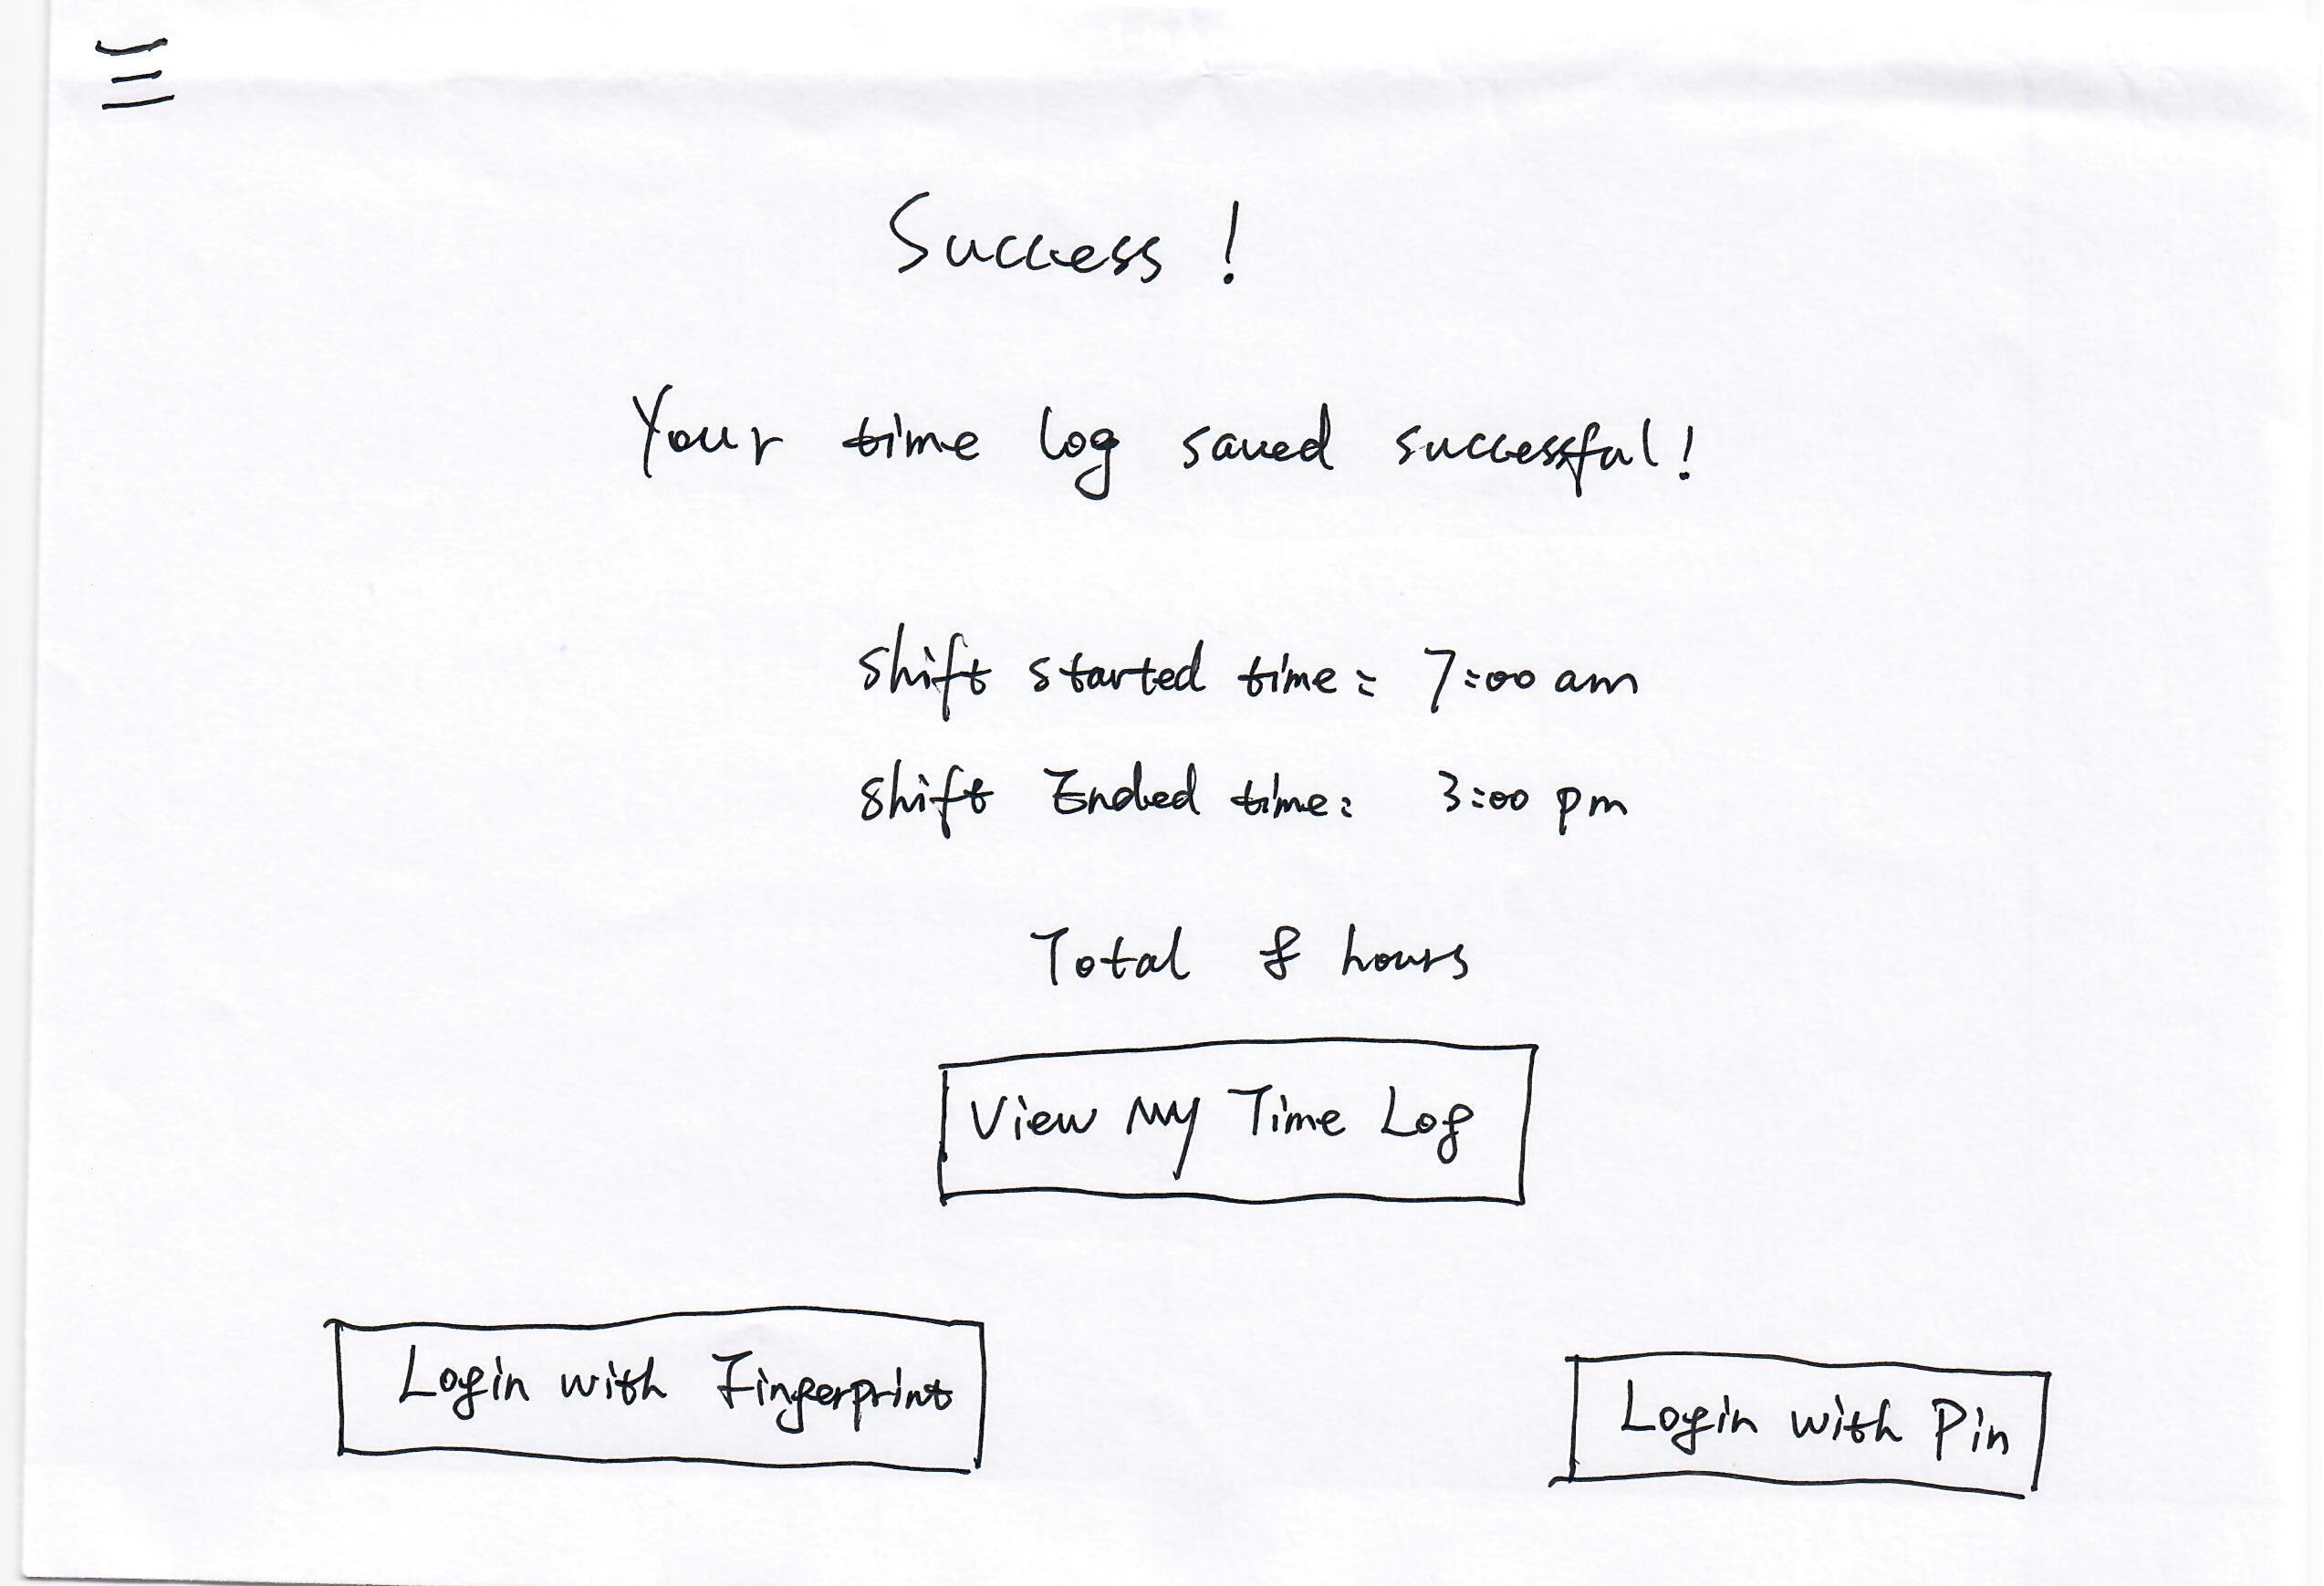 Success!
Your time log saved successful!
shift started time: 7:00 am
shift Ended time: 3:00 pm
Total 8 hours
View My Time Log
Login with Fingerprint
Login with Pin